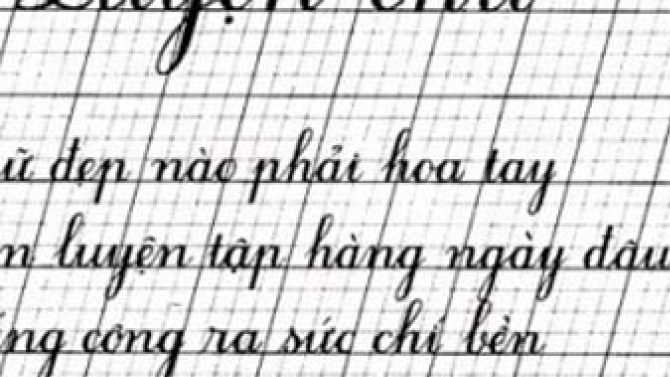 Luyện chữ
ữ đẹp nào phải hoa tay
m luyện tập hàng ngày đâu
ng công ra sức chí bền